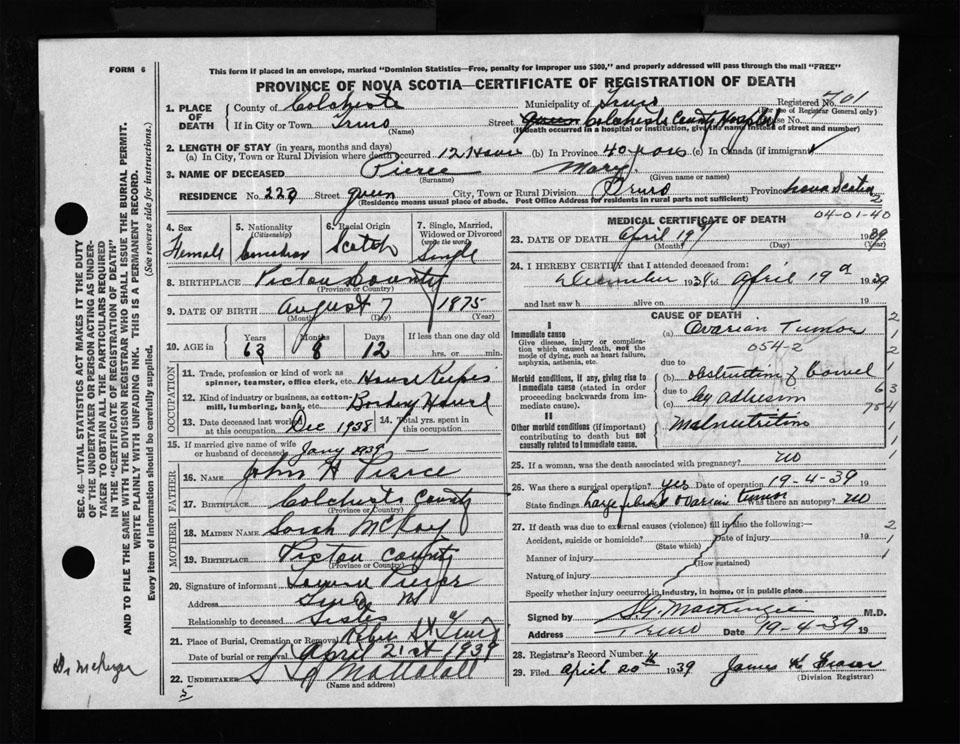 FORM 6
This form if placed in an envelope, marked "Dominion Statistics—Free, penalty for improper use $300," and properly addressed will pass through the mail "FREE"
PROVINCE OF NOVA SCOTIA—CERTIFICATE OF REGISTRATION OF DEATH
1. PLACE OF DEATH { County of Colchester Municipality of Truro Registered No. 701
(Use of Registrar General only)
If in City or Town Truro Street Colchester County Hospital House No.
(Name) (If death occurred in a hospital or institution, give the name instead of street and number)
2. LENGTH OF STAY (in years, months and days)
(a) In City, Town or Rural Division where death occurred 12 Hours (b) In Province 40 (c) In Canada (if immigrant)
3. NAME OF DECEASED Pierce Mary
(Surname) (Given name or names)
RESIDENCE No. 223 Street Queen City, Town or Rural Division Truro Province Nova Scotia
(Residence means usual place of abode. Post Office Address for residents in rural parts not sufficient)
2
4. Sex
Female
5. Nationality
(Citizenship)
Canadian
6. Racial Origin
Scotch
7. Single, Married, Widowed or Divorced
(write the word)
Single
8. BIRTHPLACE Pictou County
(Province or Country)
9. DATE OF BIRTH August 7 1875
(Month) (Day)
10. AGE in { Years Months Days If less than one day
63 8 12 hrs. or min.
OCCUPATION
11. Trade, profession or kind of work as spinner, teamster, office clerk, etc. House Keeper
12. Kind of industry or business, as cotton-mill, lumbering, bank, etc. Boarding House
13. Date deceased last worked at this occupation Dec 1938 14. Total yrs. spent in this occupation
15. If married give name of wife or husband of deceased
FATHER
16. NAME John H Pierce
17. BIRTHPLACE Colchester County
(Province or Country)
MOTHER
18. MAIDEN NAME Sarah McKay
19. BIRTHPLACE Pictou County
(Province or Country)
20. Signature of informant
Address Truro NS
Relationship to deceased Sister
21. Place of Burial, Cremation or Removal Robie St Truro
Date of burial or removal April 21st 1939
22. UNDERTAKER
(Name and address)
5
MEDICAL CERTIFICATE OF DEATH
04-01-40
23. DATE OF DEATH April 19th 1939
(Month) (Day)
24. I HEREBY CERTIFY that I attended deceased from:
December 1938 to April 19 1939
and last saw h alive on 19
CAUSE OF DEATH
I
Immediate cause
Give disease, injury or complication which caused death, not the mode of dying, such as heart failure, asphyxia, asthenia, etc.
(a) Ovarian Tumor
054-2
due to
Morbid conditions, if any, giving rise to immediate cause (stated in order proceeding backwards from immediate cause).
(b) obstruction of bowel
due to
(c) by adhesion
II
Other morbid conditions (if important) contributing to death but not causally related to immediate cause.
Malnutrition
25. If a woman, was the death associated with pregnancy? No
26. Was there a surgical operation? yes Date of operation 19-4-39 19
State findings Large fibroid Ovarian tumor Was there an autopsy? No
27. If death was due to external causes (violence) fill in also the following:—
Accident, suicide or homicide? Date of injury 19
(State which)
Manner of injury
(How sustained)
Nature of injury
Specify whether injury occurred in industry, in home, or in public place
Signed by S.G. MacKenzie M.D.
Address Truro Date 19-4-39 19
28. Registrar's Record Number
29. Filed April 20th 1939 James K Fraser
(Division Registrar)
SEC. 46—VITAL STATISTICS ACT MAKES IT THE DUTY OF THE UNDERTAKER OR PERSON ACTING AS UNDERTAKER TO OBTAIN ALL THE PARTICULARS REQUIRED IN THE "CERTIFICATE OF REGISTRATION OF DEATH" AND TO FILE THE SAME WITH THE DIVISION REGISTRAR WHO SHALL ISSUE THE BURIAL PERMIT.
WRITE PLAINLY WITH UNFADING INK. THIS IS A PERMANENT RECORD.
Every item of information should be carefully supplied. (See reverse side for instructions.)